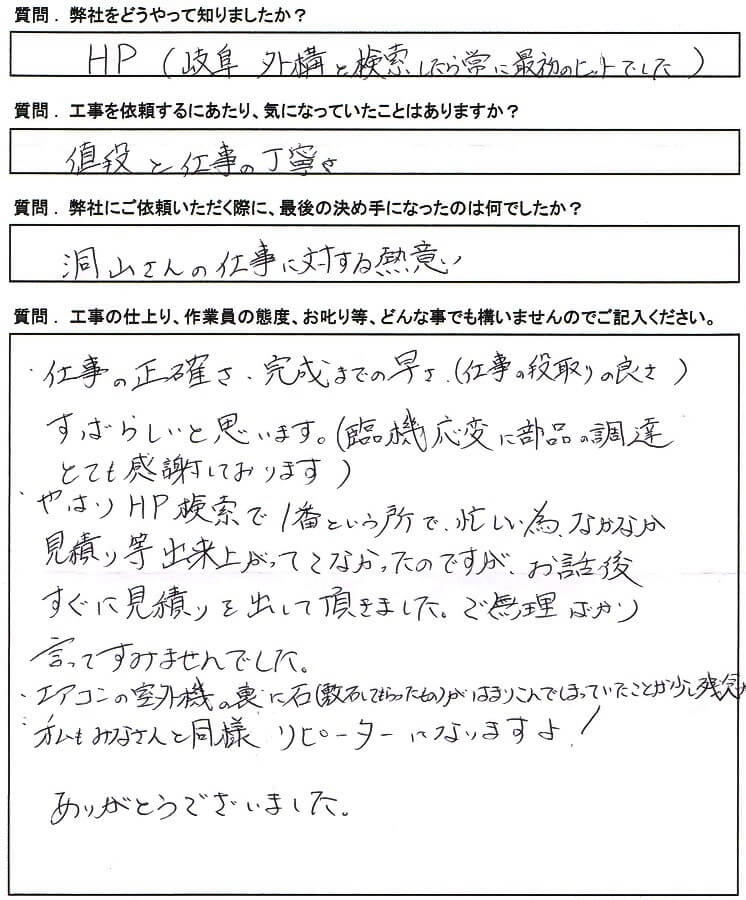 質問．弊社をどうやって知りましたか？
HP（岐阜 外構と検索したら常に最初のヒットでした）
質問．工事を依頼するにあたり、気になっていたことはありますか？
値段と仕事の丁寧さ
質問．弊社にご依頼いただく際に、最後の決め手になったのは何でしたか？
洞山さんの仕事に対する熱意い
質問．工事の仕上り、作業員の態度、お叱り等、どんな事でも構いませんのでご記入ください。
・仕事の正確さ、完成までの早さ、（仕事の段取りの良さ）
すばらしいと思います。（臨機応変に部品の調達
とても感謝しております）
・やはりHP検索で1番という所で、忙しい為、なかなか
見積り等出来上がってこなかったのですが、お話後
すぐに見積りを出して頂きました。ご無理ばかり
言ってすみませんでした。
・エアコンの室外機の裏に石（敷石してもらったもの）がはまりこんでしまっていたことが少し残念
・私もみなさんと同様 リピーターになりますよ！
ありがとうございました。